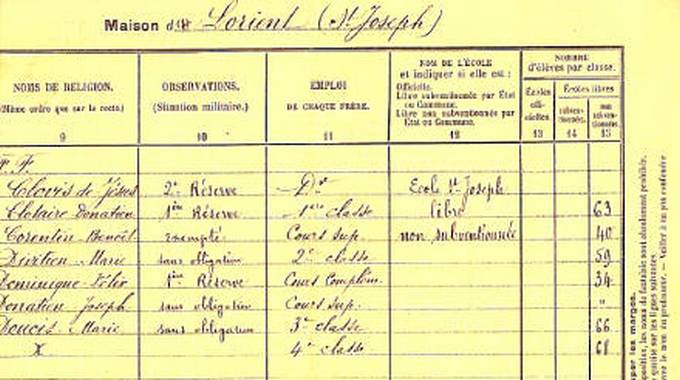 Maison de Lorient (St Joseph)
NOMS DE RELIGION. OBSERVATIONS. EMPLOI NOM DE L'ÉCOLE NOMBRE
(Même ordre que sur le recto.) (Situation militaire.) DE CHAQUE FRÈRE. et indiquer si elle est : d'élèves par classe.
Officielle.
Libre subventionnée par État
ou Commune.
Libre non subventionnée par
État ou Commune.
Écoles officielles Écoles libres
subventionnées. non subventionnées.
9 10 11 12 13 14 15
F. F.
Clovis de Jésus 2e Réserve Dr Ecole St Joseph
Clotaire Donatien 1ère Réserve 1ère classe libre 63
Corentin Benoît exempté Cours sup. non subventionnée 40
Divitien Marie sans obligation 2e classe 59
Dominique Félix 1ère Réserve Cours Complém. 34
Donatien Joseph sans obligation Cours sup. "
Doucis Marie sans obligation 3e classe 66
X 4e classe 68
les marges.